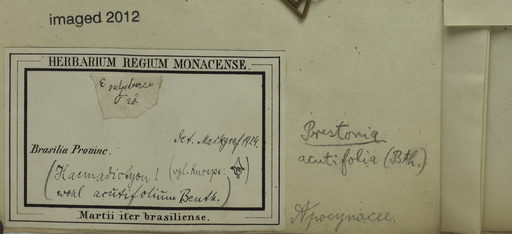 imaged 2012
HERBARIUM REGIUM MONACENSE.
Det. Markgraf 1924.
Brasilia Provinc.
(Haemadictyon! (vgl.
wohl acutifolium Benth.)
Martii iter brasiliense.
Prestonia
acutifolia (Bth.)
Apocynacee.